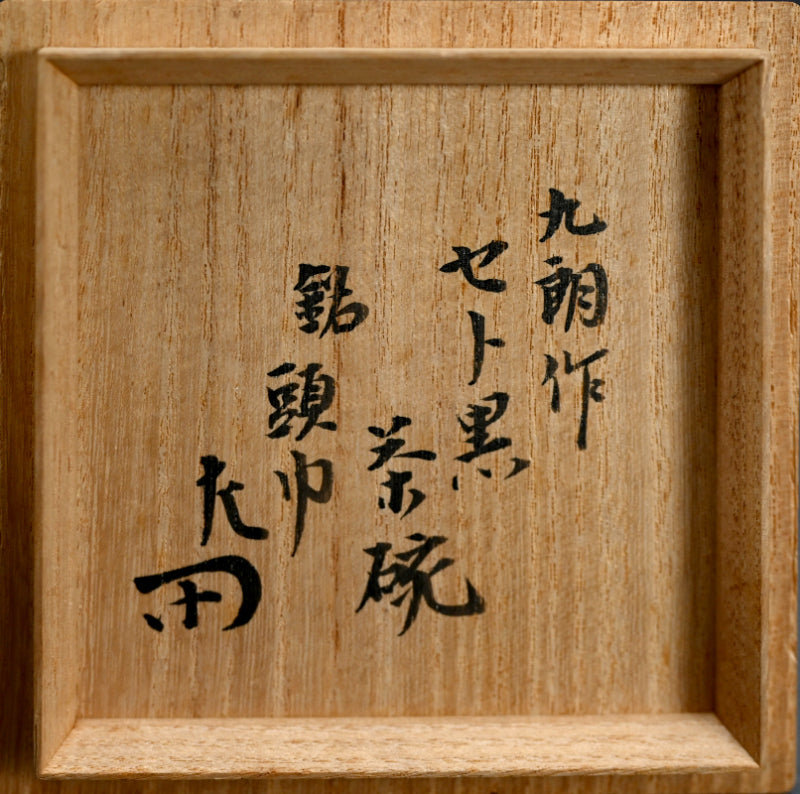 九朗作
セト黒
茶碗
銘頭巾